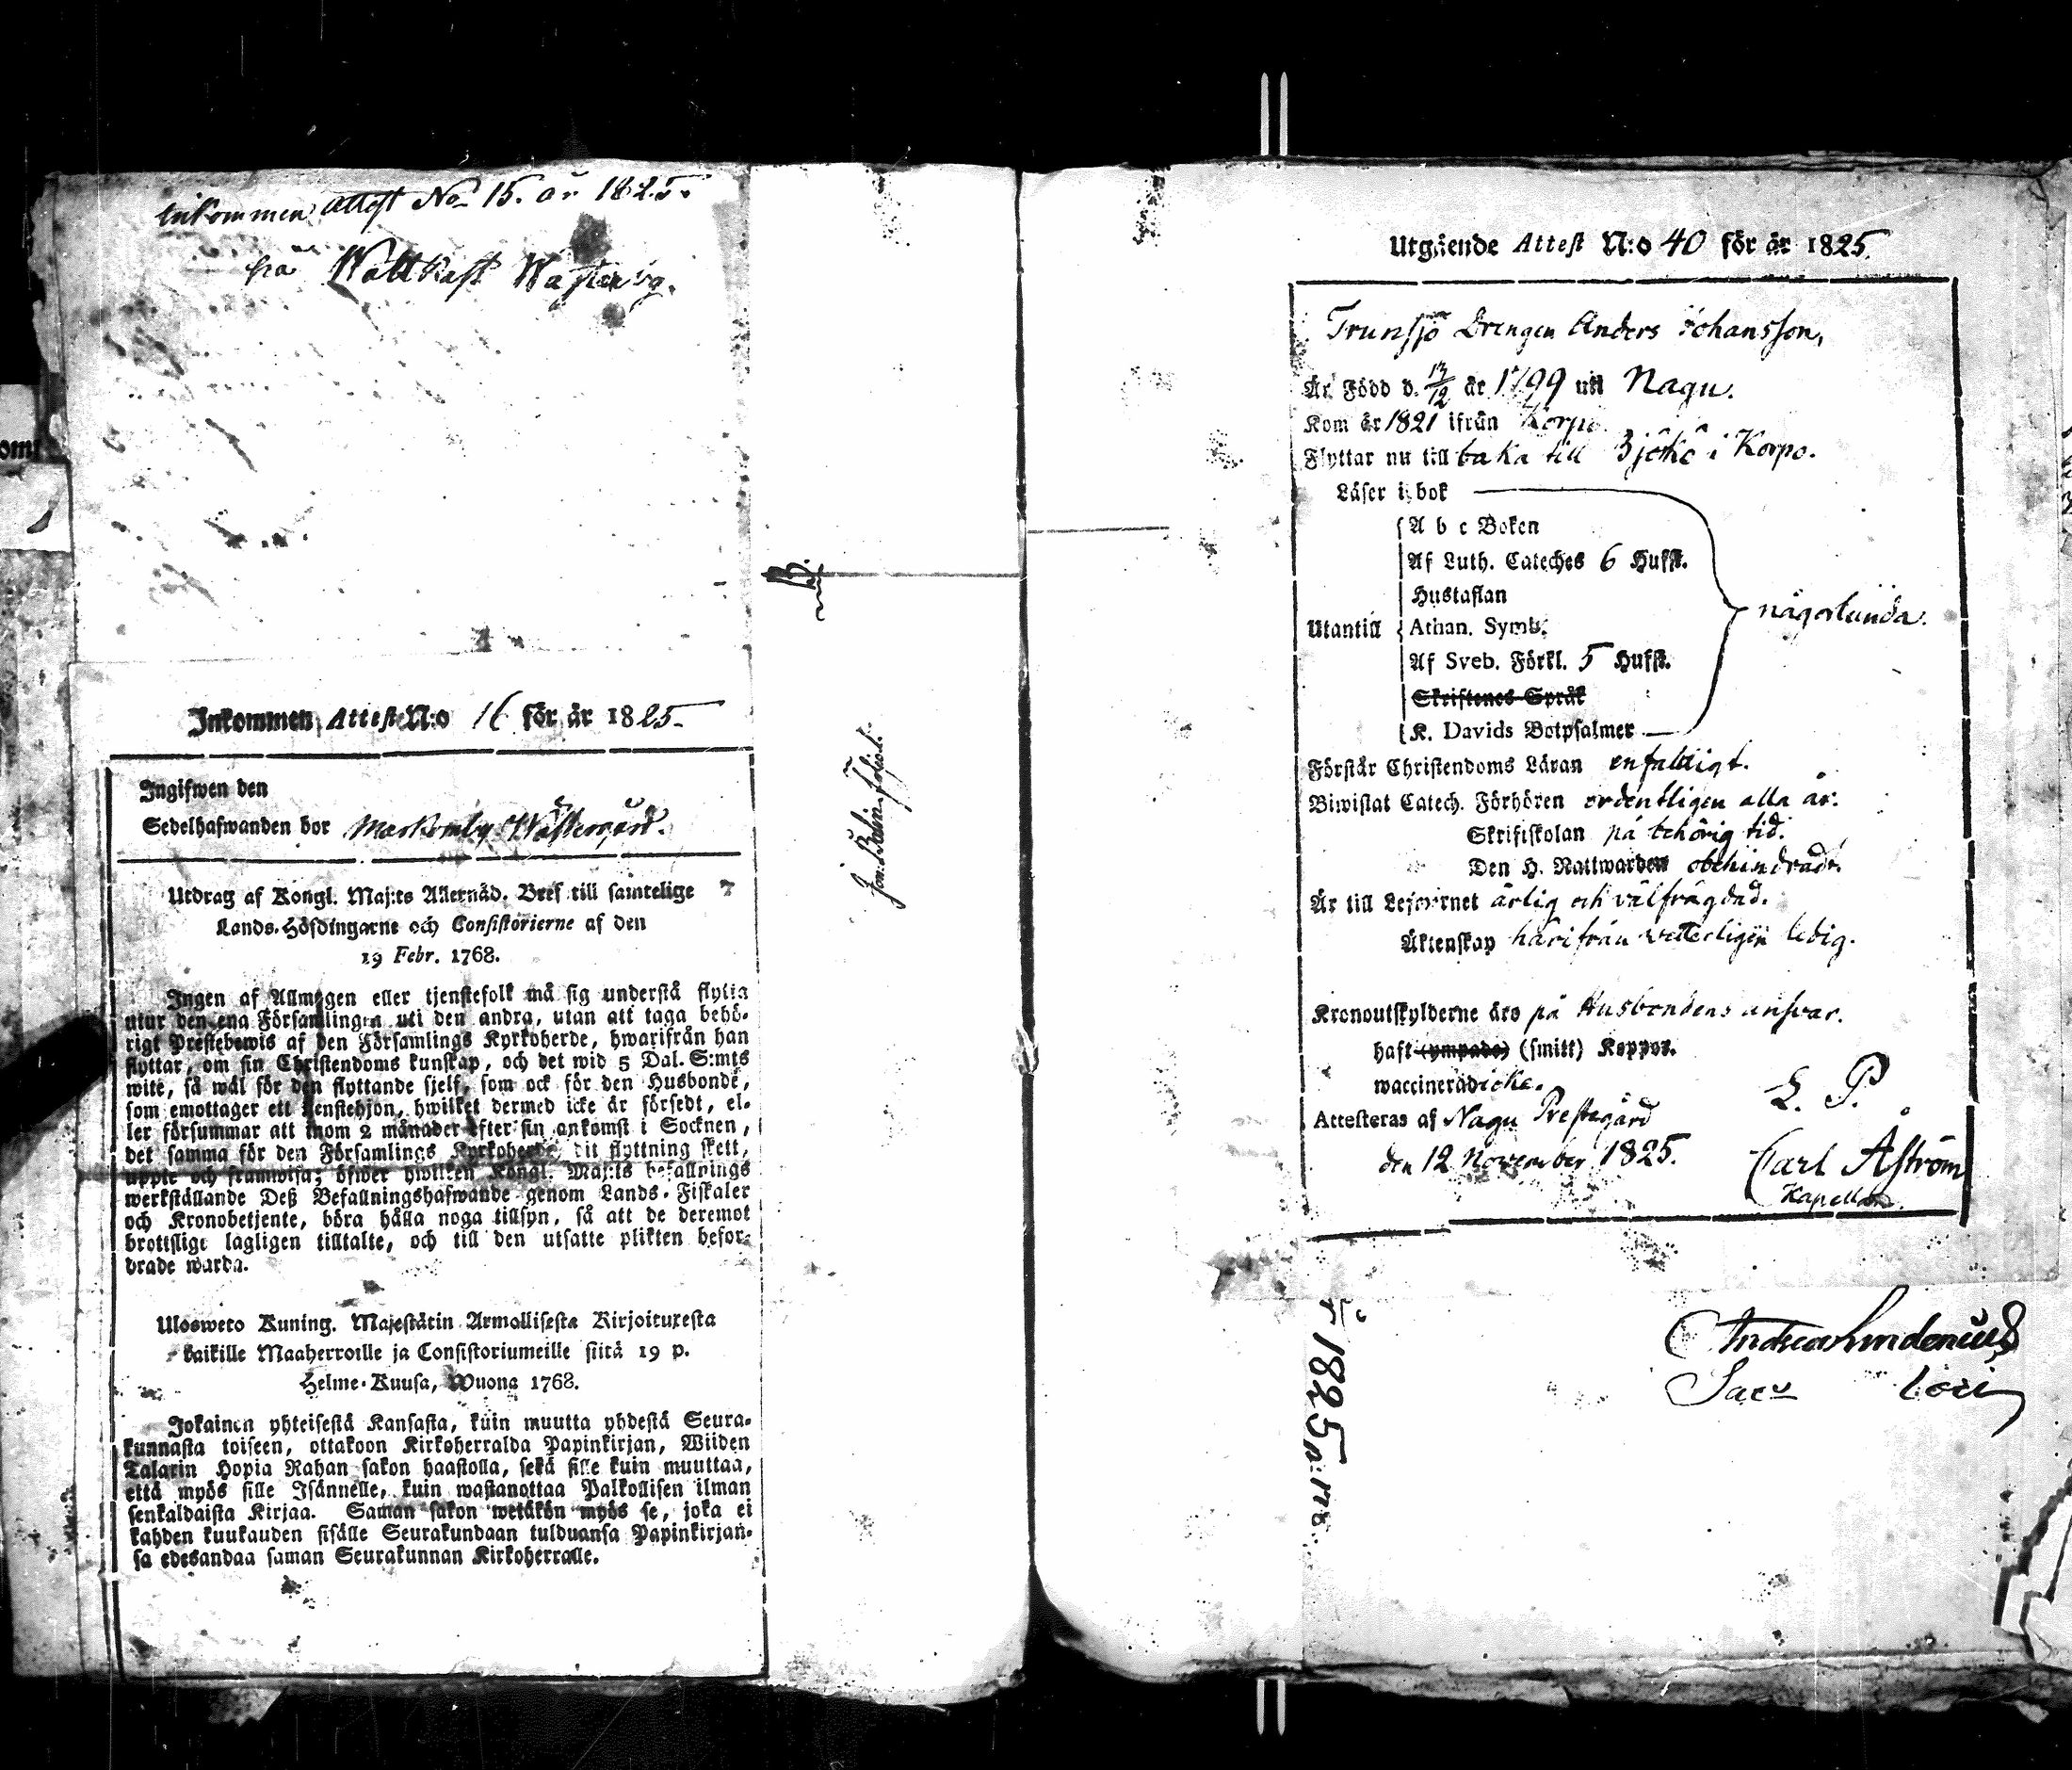 Inkommen attest No 15. år 1825.
från Wattkast Westerby.
Inkommen Attest N:o 16 för år 1825.
Ingifwen den
Sedelhafwanden bor Markomby Wästergård.
Utdrag af Kongl. Maj:ts Allernåd. Bref till samtelige
Lands-Höfdingarne och Consistorierne af den
19 Febr. 1768.
Ingen af Allmogen eller tjenstefolk må sig understå flytta
utur den ena Församlingen uti den andra, utan att taga behö-
rigt Prestebewis af den Församlings Kyrkoherde, hwarifrån han
flyttar, om sin Christendoms kunskap, och det wid 5 Dal. S:mts
wite, så wäl för den flyttande sjelf, som ock för den Husbonde,
som emottager ett tjenstehjon, hwilket dermed icke är försedt, el-
ler försummar att inom 2 månader efter sin ankomst i Socknen,
det samma för den Församlings Kyrkoherde, dit flyttning skett,
uppte och framwisa; öfwer hwilken Kongl. Maj:ts befallnings
werkställande Deß Befallningshafwande genom Lands-Fiskaler
och Kronobetjente, böra hålla noga tillsyn, så att de deremot
brottslige lagligen tilltalte, och till den utsatte plikten befor-
drade warda.
Ulosweto Kuning. Majestätin Armollisesta Kirjoituxesta
kaikille Maaherroille ja Consistoriumeille siitä 19 p.
Helme-Kuusa, Wuona 1768.
Jokainen yhteisestä Kansasta, kuin muutta yhdestä Seura-
kunnasta toiseen, ottakoon Kirkoherralda Papinkirjan, Wiiden
Talarin Hopia Rahan sakon haastolla, sekä sille kuin muuttaa,
että myös sille Isännelle, kuin wastanottaa Palkollisen ilman
senkaldaista Kirjaa. Saman sakon wetäkön myös se, joka ei
kahden kuukauden sisälle Seurakundaan tulduansa Papinkirjan-
sa edesandaa saman Seurakunnan Kirkoherralle.
Utgående Attest N:o 40 för år 1825.
Trunsjö Drengen Anders Johansson,
Är Född d. 13/12 år 1799 uti Nagu.
Kom år 1821 ifrån Korpo.
Flyttar nu tillbaka till Björkö i Korpo.
Läser i bok
A b c Boken
Af Luth. Cateches 6 Hufst.
Hustaflan
någorlunda.
Utantill Athan. Symb.
Af Sveb. Förkl. 5 Hufst.
Skriftenes Språk
K. Davids Botpsalmer
Förstår Christendoms Läran enfaldigt.
Biwistat Catech. Förhören ordentligen alla år.
Skriftskolan på behörig tid.
Den H. Nattwarden obehindradt.
Är till Lefwernet ärlig och välfrägdad.
Äktenskap härifrån vetterligen ledig.
Kronoutskylderne äro på Husbondens ansvar.
haft (ympade) (smitt) Koppor.
waccinerad icke.
L. P.
Attesteras af Nagu Prestegård
den 12 November 1825.
Carl Åström
Kapellan.
1825 n: